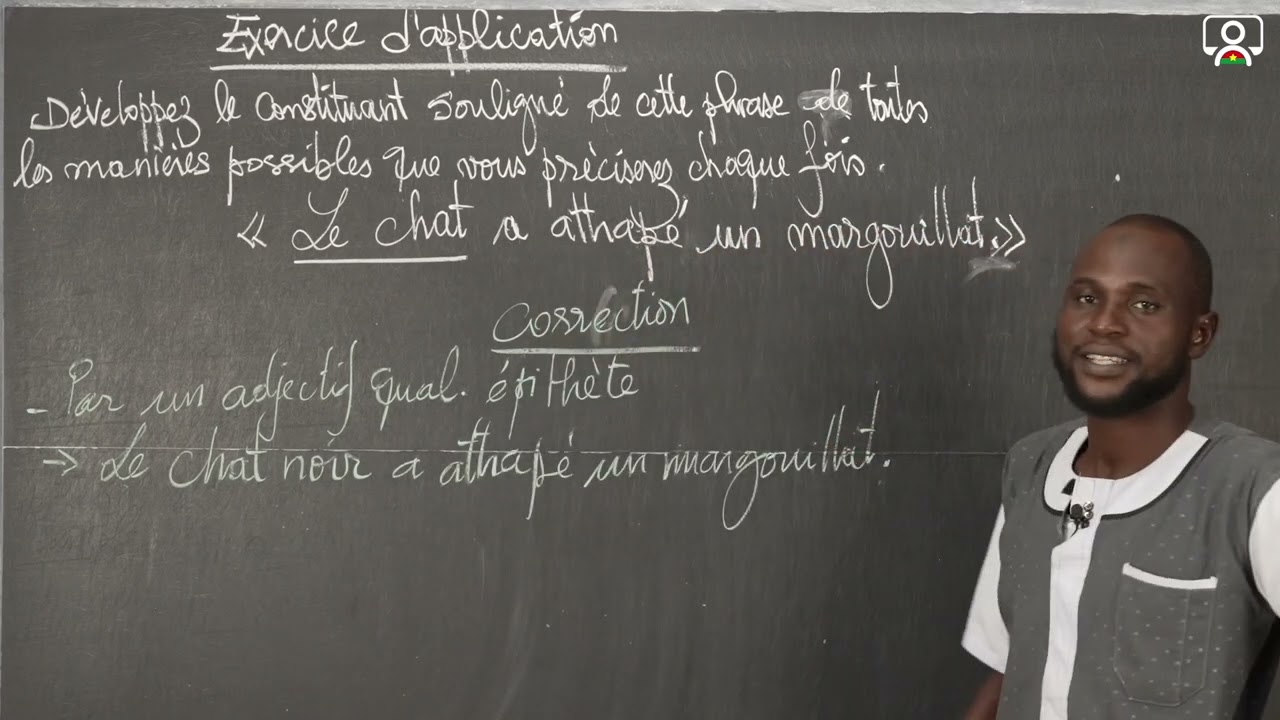 Exercice d'application
Développez le constituant souligné de cette phrase de toutes
les manières possibles que vous préciserez chaque fois.
« Le chat a attrapé un margouillat.»
Correction
- Par un adjectif qual. épithète
→ Le chat noir a attrapé un margouillat.